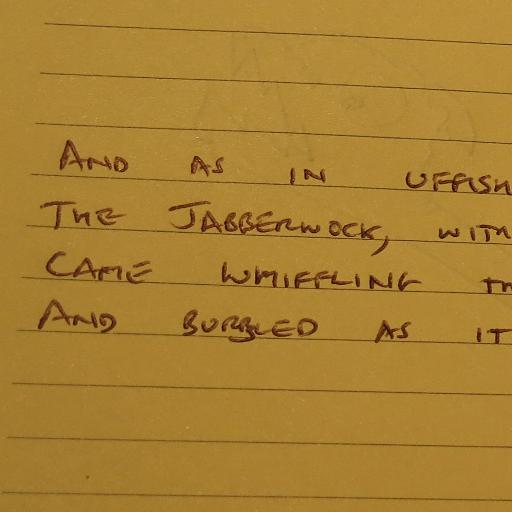 AND AS IN UFFISH
THE JABBERWOCK, WITH
CAME WHIFFLING TH
AND BURBLED AS IT